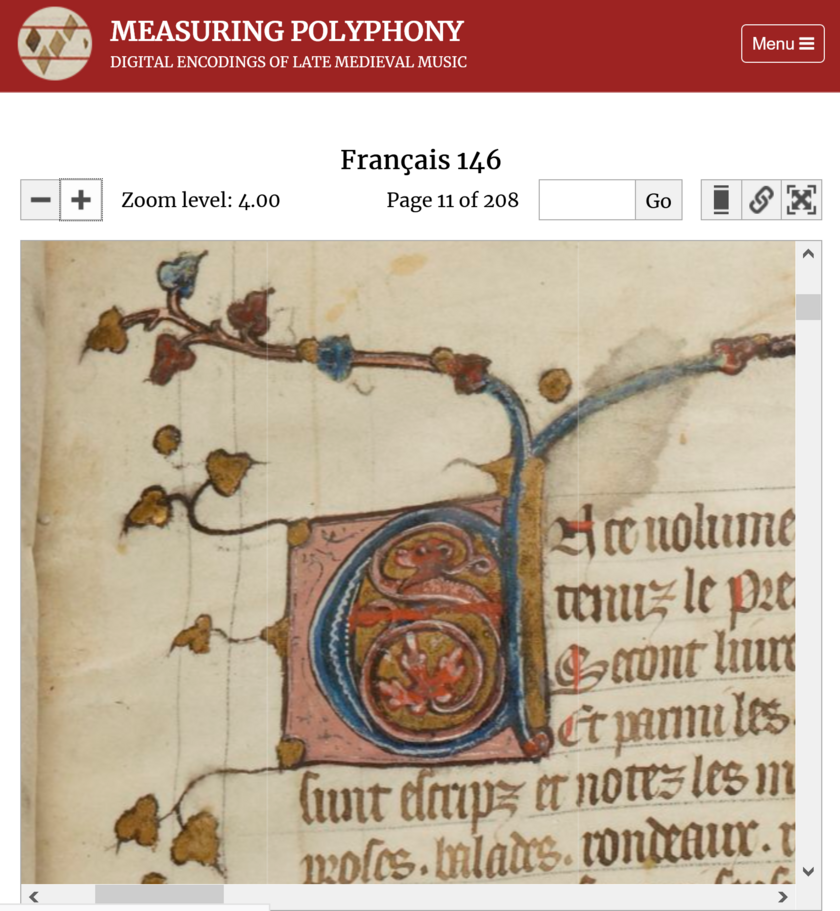 MEASURING POLYPHONY
DIGITAL ENCODINGS OF LATE MEDIEVAL MUSIC
Menu
Français 146
Zoom level: 4.00
Page 11 of 208
Go
E
N ce uolume
tenuz le pre
Seront liure
Et parmi les
sunt escripz et notez les m
proses. balades. rondeaux. r